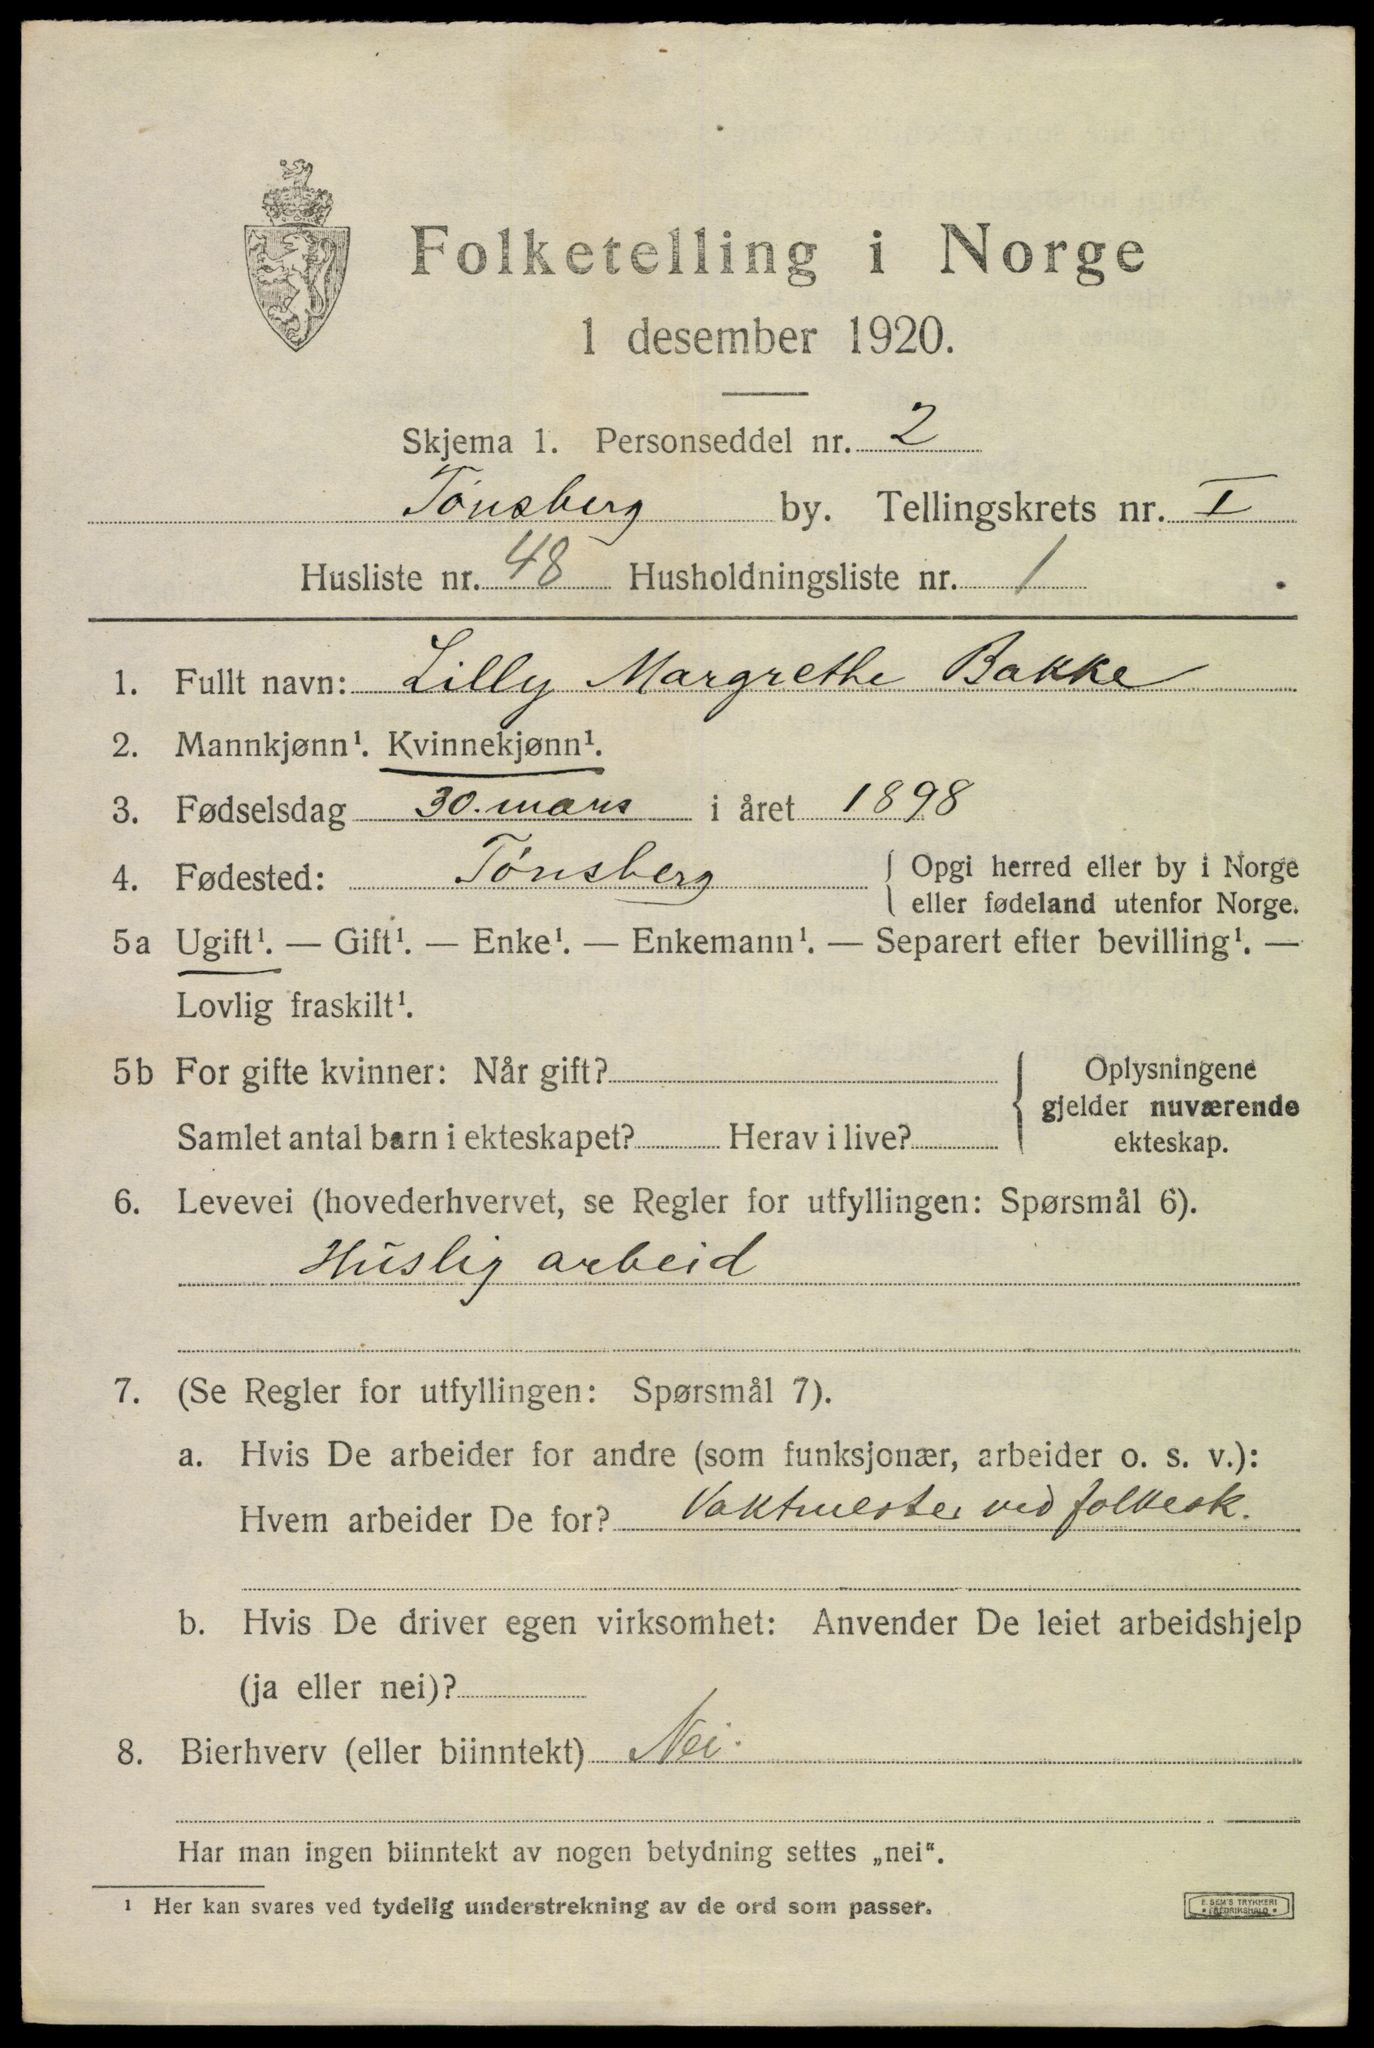 Folketelling i Norge
1 desember 1920.
Skjema 1. Personseddel nr. 2
Tønsberg by. Tellingskrets nr. I
Husliste nr. 48 Husholdningsliste nr. 1
1. Fullt navn: Lilly Margrethe Bakke
2. Mannkjønn¹. Kvinnekjønn¹.
3. Fødselsdag 30. mars i året 1898
4. Fødested: Tønsberg { Opgi herred eller by i Norge
eller fødeland utenfor Norge.
5a Ugift¹. — Gift¹. — Enke¹. — Enkemann¹. — Separert efter bevilling¹. —
Lovlig fraskilt¹.
5b For gifte kvinner: Når gift? { Oplysningene
gjelder nuværende
Samlet antal barn i ekteskapet? Herav i live? ekteskap.
6. Levevei (hovederhvervet, se Regler for utfyllingen: Spørsmål 6).
Huslig arbeid
7. (Se Regler for utfyllingen: Spørsmål 7).
a. Hvis De arbeider for andre (som funksjonær, arbeider o. s. v.):
Hvem arbeider De for? Vaktmester ved folkesk.
b. Hvis De driver egen virksomhet: Anvender De leiet arbeidshjelp
(ja eller nei)?
8. Bierhverv (eller biinntekt) Nei.
Har man ingen biinntekt av nogen betydning settes „nei“.
¹ Her kan svares ved tydelig understrekning av de ord som passer.
E. SEM'S TRYKKERI
FREDRIKSHALD